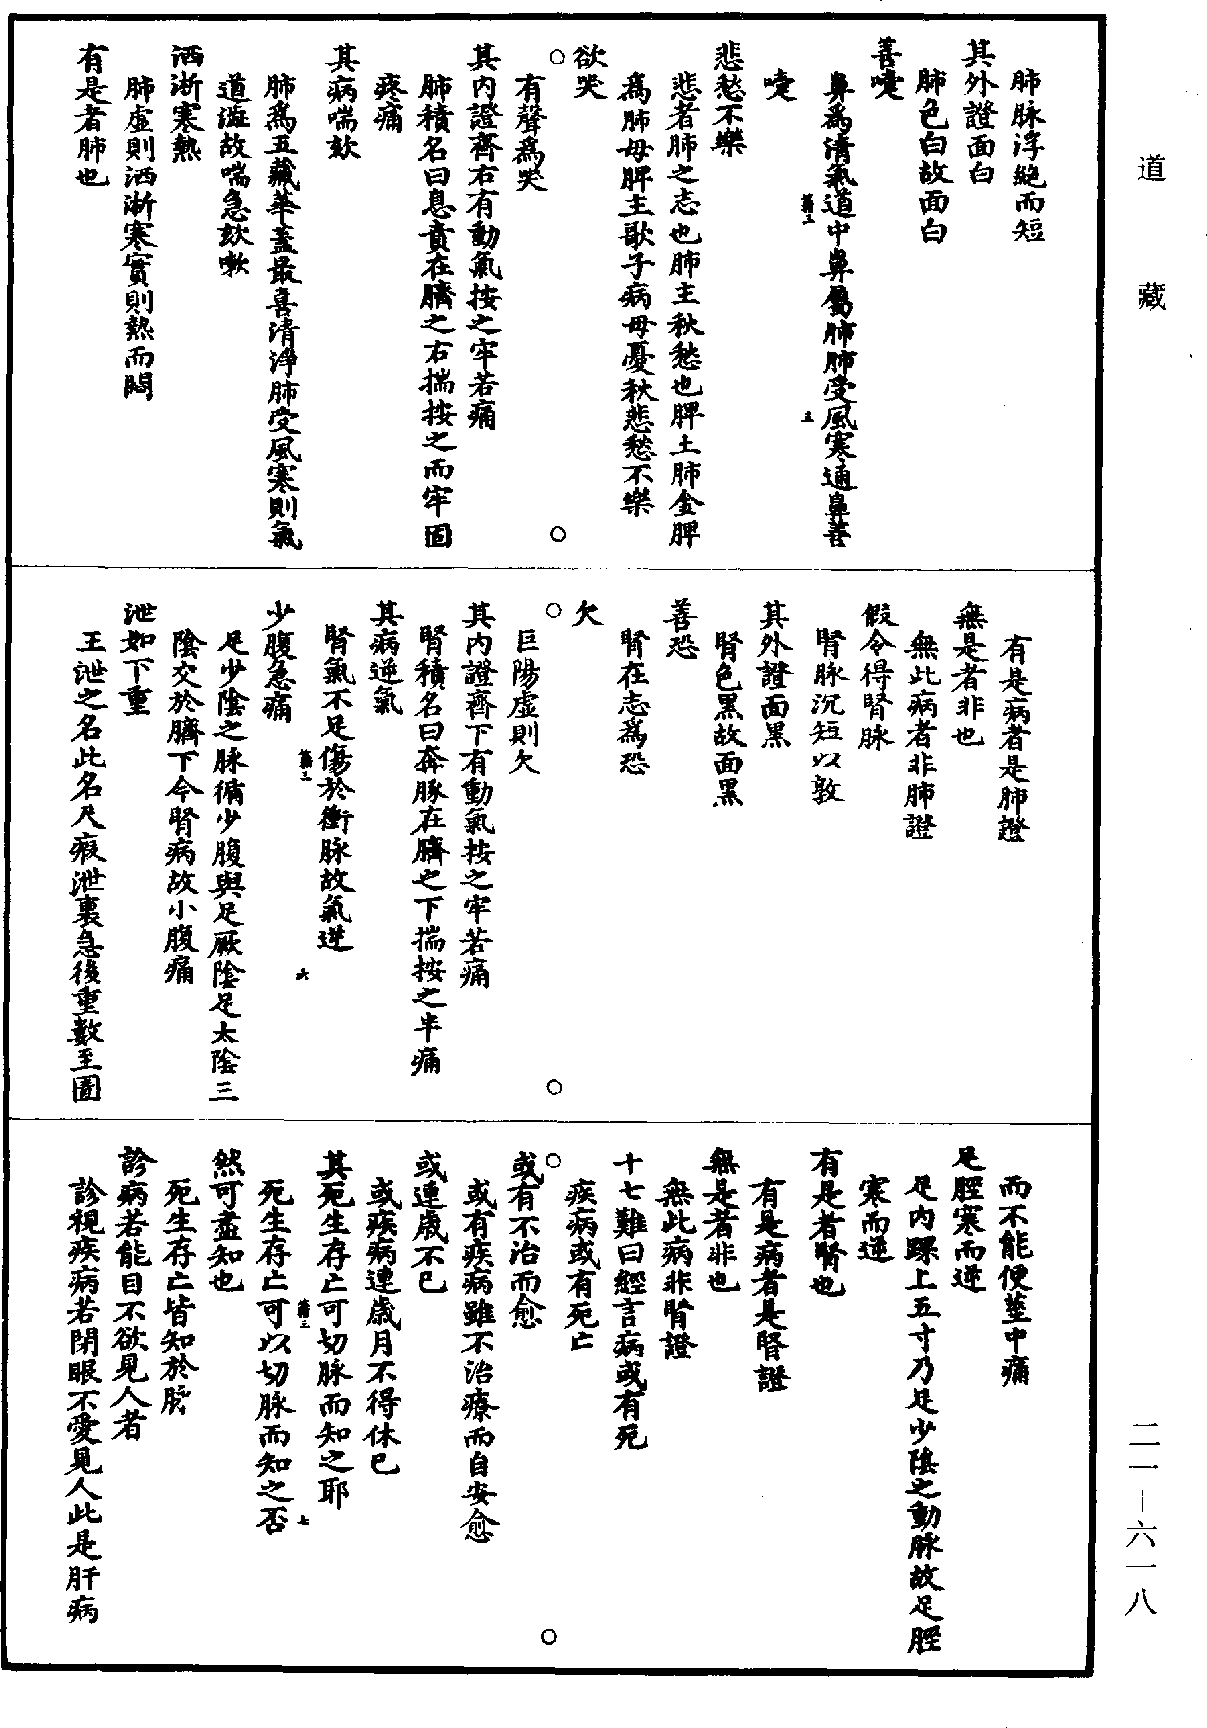 道藏
肺脉浮絶而短
其外證面白
肺色白故面白
善嚏
鼻爲清氣道中鼻屬肺肺受風寒通鼻善
嚏
悲愁不樂
悲者肺之志也肺主秋愁也脾土肺金脾
爲肺母脾主歌子病母憂秋悲愁不樂
欲哭
有聲爲哭
其内證齊右有動氣按之牢若痛
肺積名曰息賁在臍之右揣按之而牢固
疼痛
其病喘欬
肺爲五藏華蓋最喜清淨肺受風寒則氣
道澁故喘急欬嗽
洒淅寒熱
肺虛則洒淅寒實則熱而悶
有是者肺也
有是病者是肺證
無是者非也
無此病者非肺證
假令得腎脉
腎脉沉短以敦
其外證面黑
腎色黑故面黑
善恐
腎在志爲恐
欠
巨陽虛則欠
其内證齊下有動氣按之牢若痛
腎積名曰奔豚在臍之下揣按之牢痛
其病逆氣
腎氣不足傷於衝脉故氣逆
少腹急痛
足少陰之脉循少腹與足厥陰足太陰三
陰交於臍下今腎病故小腹痛
泄如下重
王泄之名此名大瘕泄裏急後重數至圊
而不能便莖中痛
足脛寒而逆
足内踝上五寸乃足少陰之動脉故足脛
寒而逆
有是者腎也
有是病者是腎證
無是者非也
無此病非腎證
十七難曰經言病或有死
疾病或有死亡
或有不治而愈
或有疾病雖不治療而自安愈
或連歲不已
或疾病連歲月不得休已
其死生存亡可切脉而知之耶
死生存亡可以切脉而知之否
然可盡知也
死生存亡皆知於脉
診病若能目不欲見人者
診視疾病若閉眼不愛見人此是肝病
二一－六一八